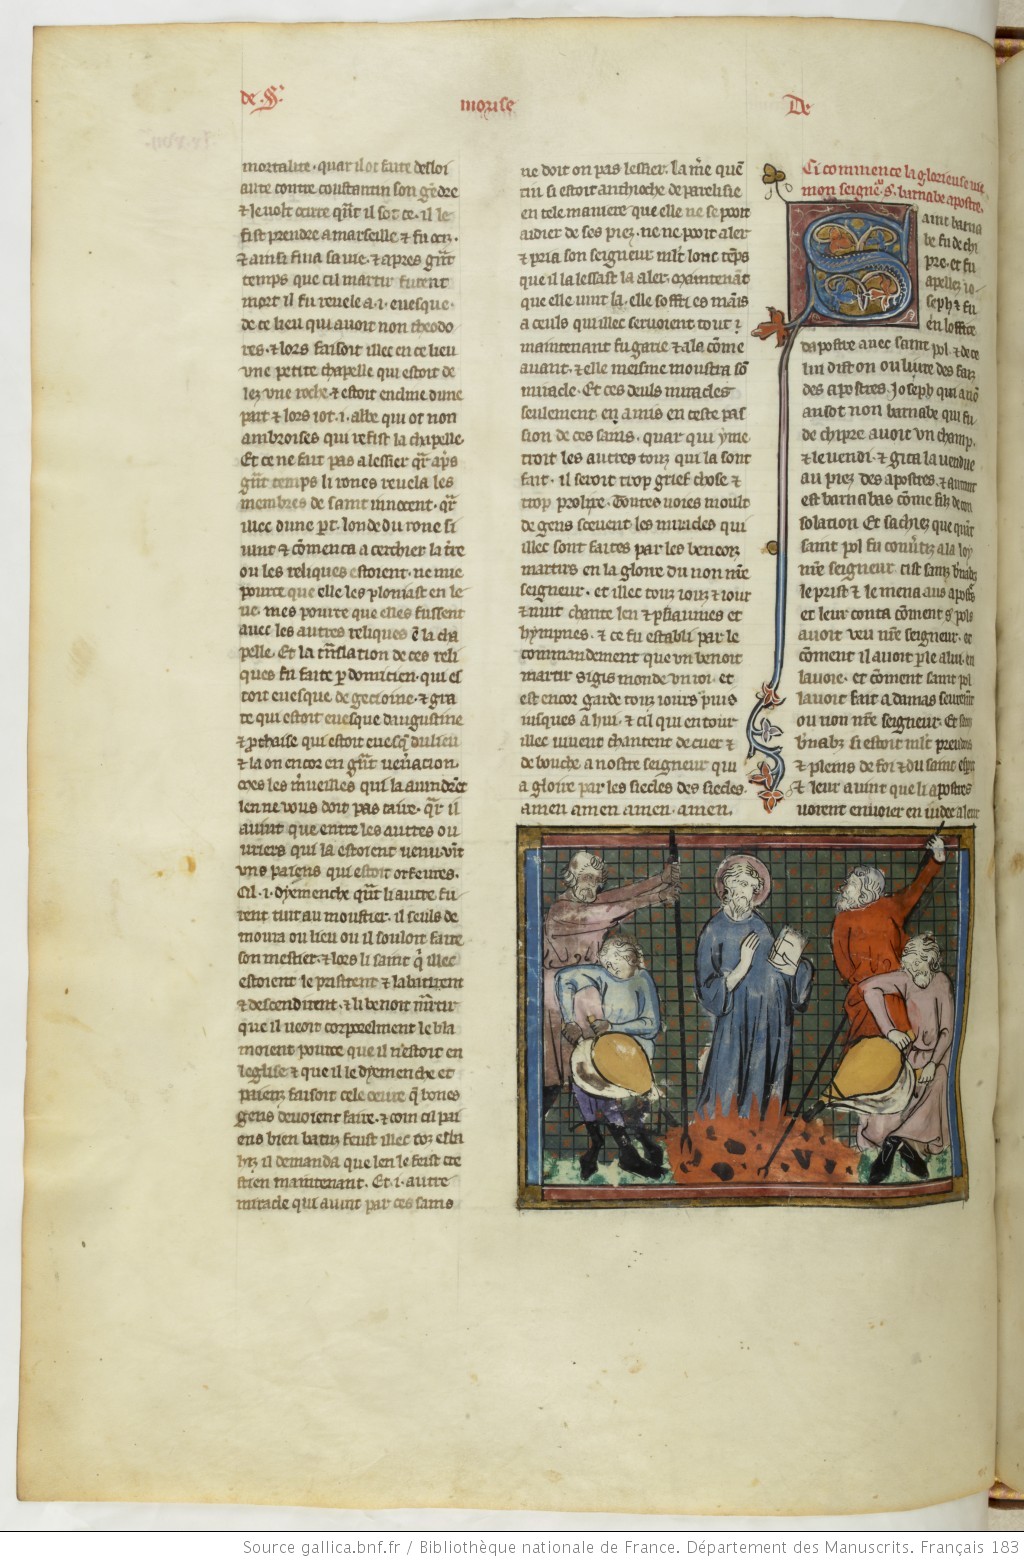 de .S.
morise
De
mortalite. quar il ot faite desloi
aute contre constantin son gendre
& le volt occirre
fist prendre a marseille & fu occiz.
& ainsi fina sa vie. & apres grant
temps que cil martir furent
mort il fu revele a .i. evesque.
de ce lieu qui avoit non theodo
res. & lors faisoit illec en ce lieu
une petite chapelle qui estoit de
lez une roche & estoit encline dune
part & lors
ambroises qui refist la chapelle.
Et ce ne fait pas a lessier qr apres
grant temps li rones revela les
membres de saint innocent. qr
illec dune part. londe du rone si
vint & comenca a cerchier la terre
ou les reliques estoient. ne mie
pource que elle les plonjast en le
ve. mes pource que elles fussent
avec les autres reliques en la cha
pelle. Et la translation de ces reli
ques fu faite par domicien. qui es
toit evesque de & gra
te qui estoit evesque daugustine
& prthaise qui estoit evesq du lieu
& la on encor en grant veneration.
les merveilles qui la avindrent
len ne vous doit pas taire. qr il
avint que entre les autres ou
vriers qui la estoient venu vint
uns paiens qui estoit orfevres.
Cil .i. dyemenche qnt li autre fu
rent tuit au moustier. il seuls de
moura ou lieu ou il souloit faire
son mestier. & lors li saint q illec
estoient le pristrent & labatirent
& descendirent. & li benoit martir
que il veoit corporelment le bla
moient pource que il nestoit en
leglise & que il le dyemenche et
paiens faisoit cele oeuvre q bones
gens devoient faire. & com cil pai
ens bien batuz feust illec
il demanda que len le feist cre
stien maintenant. Et .i. autre
miracle qui avint par ces sains
ne doit on pas lessier. la
si estoit anthioche de paralisie
en tele maniere que elle ne se pooit
aidier de ses piez. ne ne pooit aler
& pria son seigneur mlt lonc temps
que il la lessast la aler. maintenant
que elle vint la. elle soffri es mains
a ceuls qui illec servoient tout &
maintenant fu garie & ala come
avant. & elle meisme moustra son
miracle. Et ces deuls miracles
seulement en a mis en ceste pas
sion de ces sains. quar qui y me
troit les autres touz qui la sont
fait. il seroit trop grief chose &
trop prolixe. Toutes voies moult
de gens scevent les miracles qui
illec sont faites par les benooiz
martirs en la gloire du non nre
seigneur. et illec touz jourz & jour
& nuit chante len & psiaumes et
hympnes. & ce fu establi par le
commandement que un benoit
martir sigismonde un roi. et
est encor garde touz jours puis
jusques a hui. & cil qui en tour
illec vivent chantent de cuer &
de bouche a nostre seigneur qui
a gloire par les siecles des siecles
amen amen amen. amen.
Ci commence la glorieuse vie
mon seigneur s. barnabe apostre.
Saint barna
be fu de chi
pre. et fu
apellez jo
seph & fu
en loffice
dapostre avec saint pol. & de ce
lui dist on ou livre des faiz
des apostres. Joseph qui a non
ausot non barnabe qui fu
de chipre avoit un champ.
& le vendi. & gita la vendue
au piez des apostres. & autant
est barnabas come filz de con
solation. Et sachiez que quant
saint pol fu convertiz a la loy
nre seigneur. cist sainz
le prist & le mena aus apostres
et leur conta coment s. pols
avoit veu nre seigneur. &
coment il avoit parle a lui. en
la voie. et coment saint pol
lavoit fait a damas
ou non nre seigneur. Et
si estoit mlt preudons
& pleins de foi & du saint esperit
& leur avint que li apostres
vorent envoier en judee a leur
Source gallica.bnf.fr / Bibliothèque nationale de France. Département des Manuscrits. Français 183